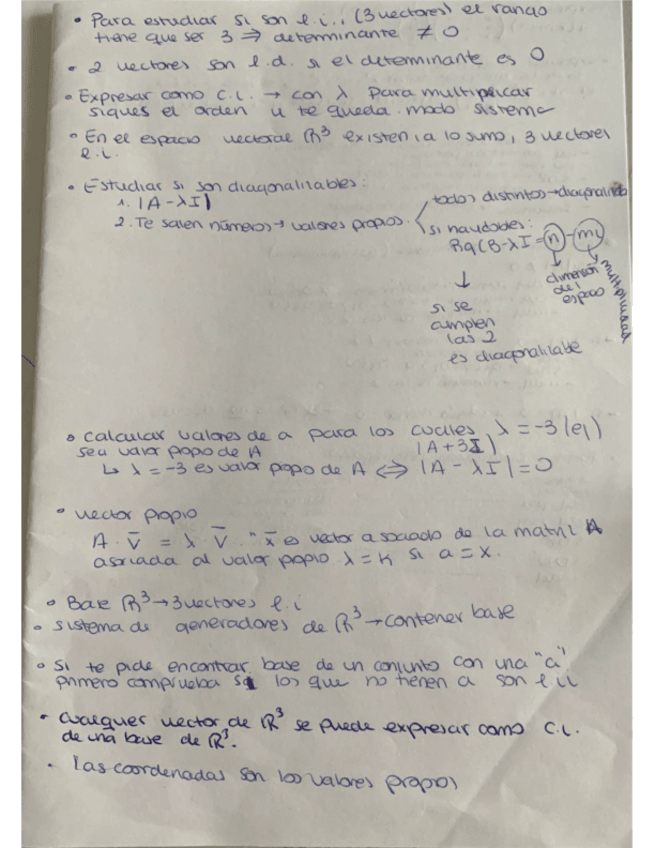 • Para estudiar si son l.i., (3 vectores) el rango
tiene que ser 3 ⇒ determinante ≠ 0
• 2 vectores son l.d. si el determinante es 0
• Expresar como c.l. → con λ para multiplicar
sigues el orden y te queda modo sistema
• En el espacio vectorial ℝ³ existen, a lo sumo, 3 vectores
l.i.
• Estudiar si son diagonalizables:
1. |A-λI|
2. Te salen números → valores propios.
todos distintos → diagonalizab
si hay dobles:
Rg(B-λI = n - mλ
dimensión
del
espacio
multiplicidad
↓
si se
cumplen
las 2
es diagonalizable
• Calcular valores de a para los cuales λ = -3 (ej)
sea valor popo de A |A+3I|
↳ λ = -3 es valor popo de A ⇔ |A - λI| = 0
• Vector propio
A · v̄ = λ · v̄. "x̄ es vector asociado de la matriz A
asociada al valor popio λ = k si a = x.
• Base ℝ³ → 3 vectores l.i
• sistema de generadores de ℝ³ → contener base
• Si te pide encontrar base de un conjunto con una "a",
primero comprueba si los que no tienen a son l.i
• Cualquier vector de ℝ³ se puede expresar como c.l.
de una base de ℝ³.
• Las coordenadas son los valores propios